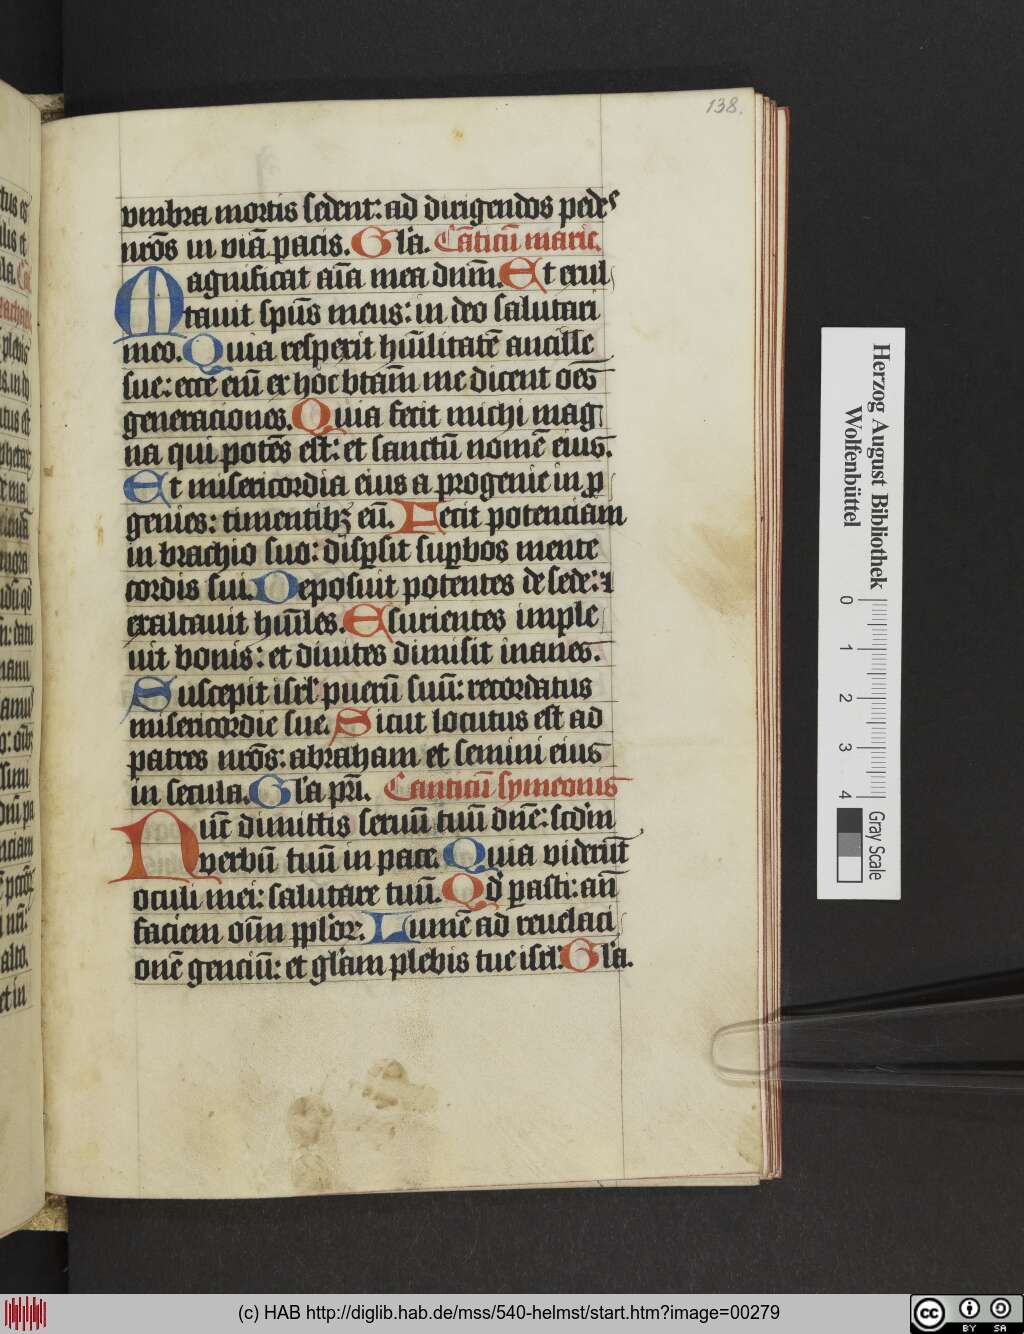 138.
vmbra mortis sedent: ad dirigendos pedes
nr̄os in viā pacis. Gl'a. Cāticū marie.
Magnificat aīa mea dnm̄. Et exul
tauit spūs meus: in deo salutari
meo. Quia respexit hūilitatē ancille
sue: ecce eni ex hoc btām me dicent oēs
generationes. Quia fecit michi mag
na qui potēs est: et sanctū nomē eius.
Et misericordia eius a progenie in ꝓ
genies: timentibꝫ eū. Fecit potenciam
in brachio suo: disꝑsit suꝑbos mente
cordis sui. Deposuit potentes de sede: ⁊
exaltauit hūiles. Esurientes imple
uit bonis: et diuites dimisit inanes.
Suscepit isrl' puerū suū: recordatus
misericordie sue. Sicut locutus est ad
patres nr̄os: abraham et semini eius
in secula. Gl'a pr̄i. Canticū symeonis
Nūc dimittis seruū tuū dn̄e: scdm
verbū tuū in pace. Quia viderūt
oculi mei: salutare tuū. Qd' parasti: an̄
faciem oīm ppl'oꝝ. Lumē ad reuelaci
onē genciū: et gl'am plebis tue isrl': Gl'a.
Herzog August Bibliothek
Wolfenbüttel
0 1 2 3 4
Gray Scale
(c) HAB http://diglib.hab.de/mss/540-helmst/start.htm?image=00279
cc BY SA